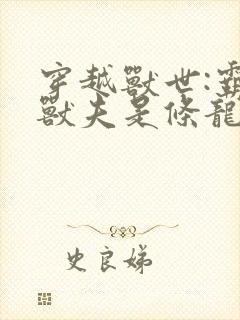 穿越獸世:霸
獸夫是條龍
史良娣